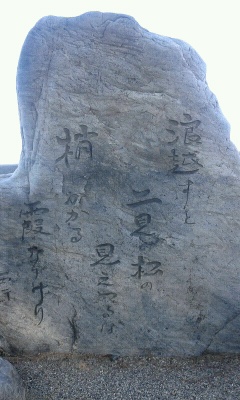 浪越すと
二見の松の
見えつるは
梢にかかる
霞なりけり